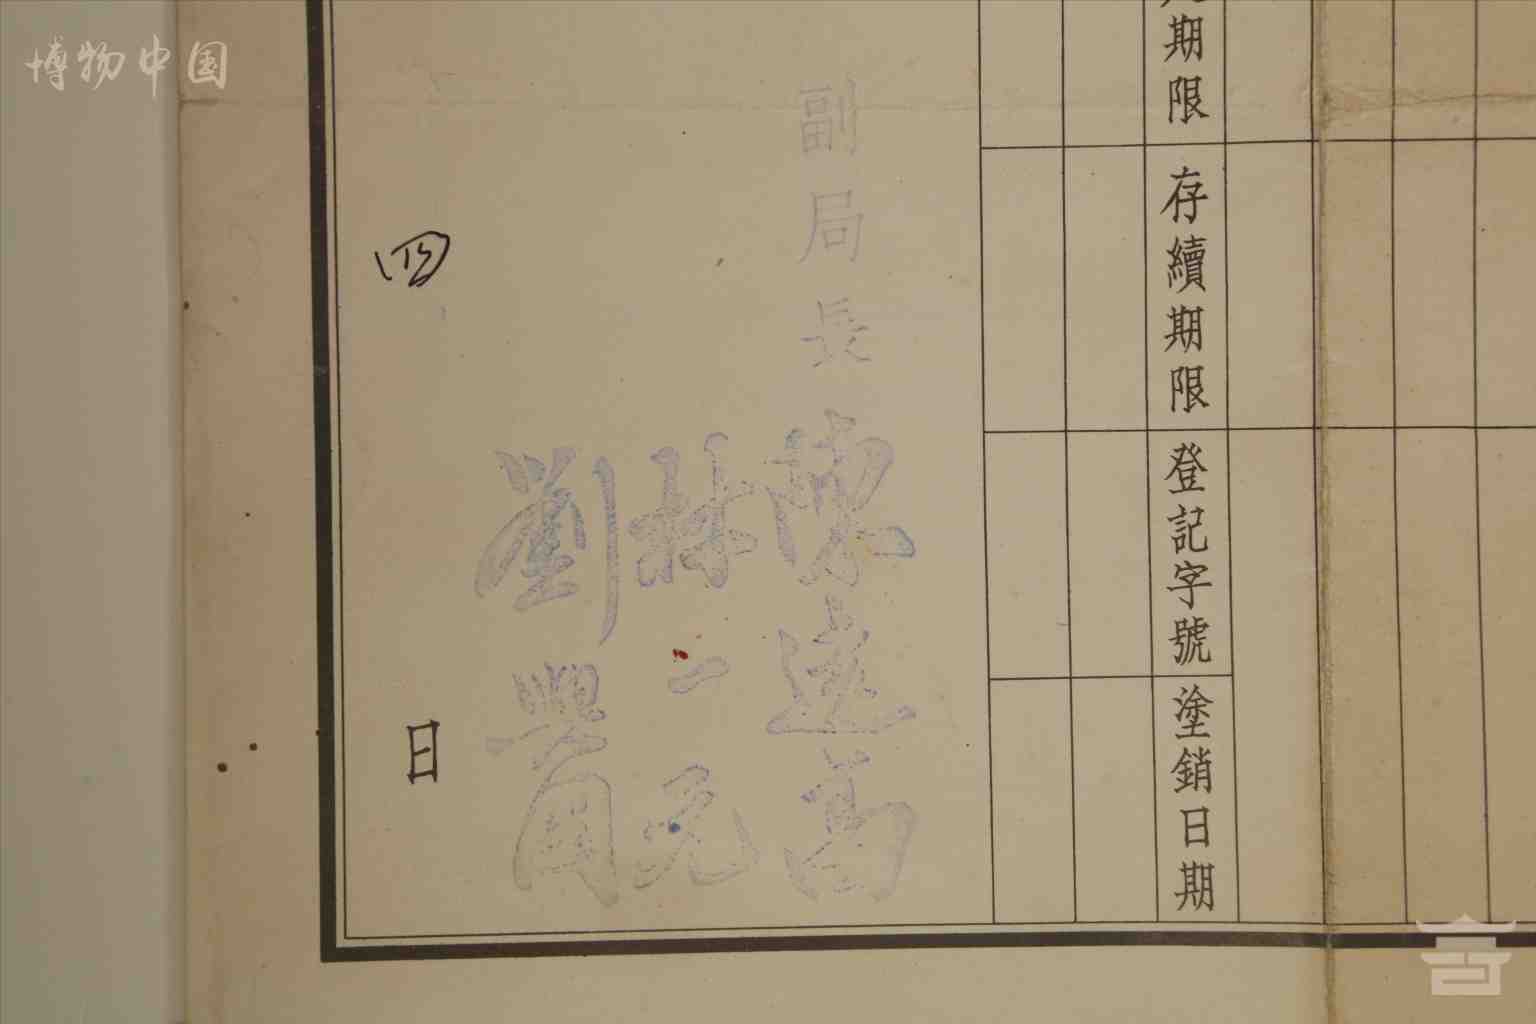 博物中国
期限
存續期限
登記字號
塗銷日期
副局長
林一元
劉
四
日